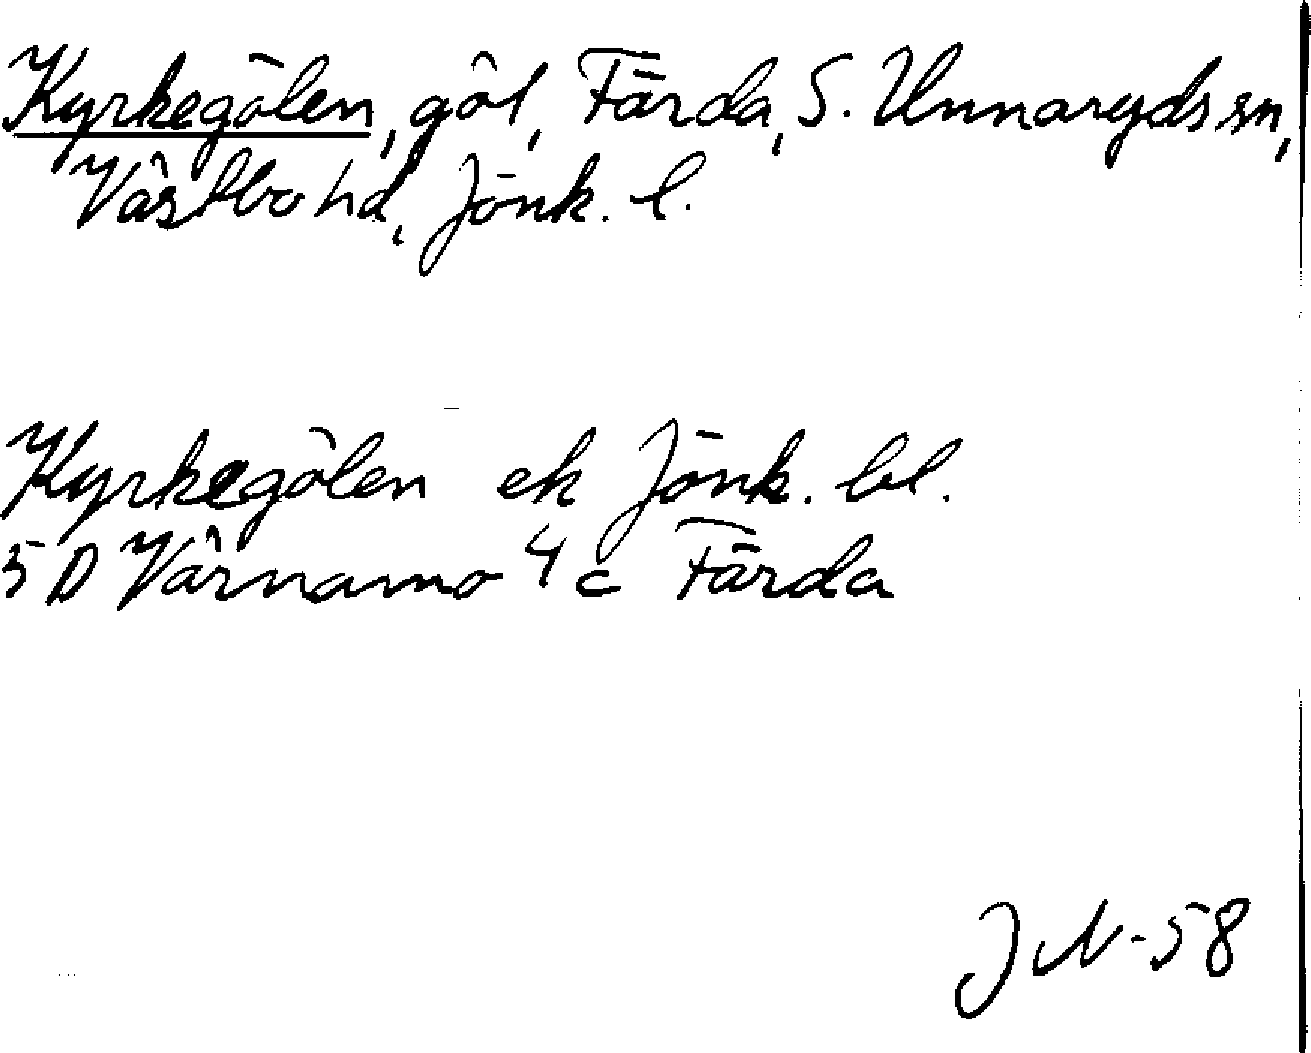 Kyrkegölen, göl, Färda, S. Unnaryds sn,
Västbo hd, Jönk. l.
Kyrkegölen ek Jönk. bl.
5 D Värnamo 4 c Färda
JN-58